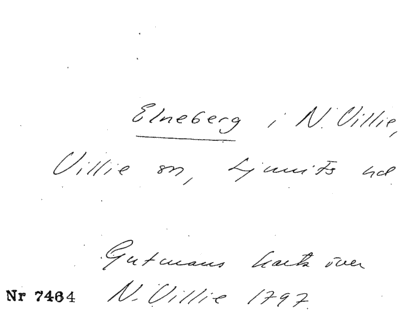 Elneberg i N. Villie,
Villie sn, Ljunits hd
Gutmans karta över
Nr 7464 N. Villie 1797